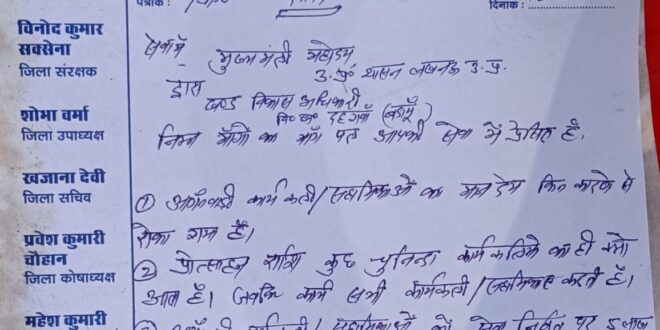 पत्रांक :
दिनांक :
विनोद कुमार
सक्सेना
जिला संरक्षक
शोभा वर्मा
जिला उपाध्यक्ष
खजाना देवी
जिला सचिव
प्रवेश कुमारी
चौहान
जिला कोषाध्यक्ष
महेश कुमारी
सेवा में
मुख्यमंत्री महोदय
उ.प्र. शासन लखनऊ उ.प्र.
द्वारा
खण्ड विकास अधिकारी
वि० ख० दहगवाँ (बदायूँ)
निम्न माँगों का माँग पत्र आपकी सेवा में प्रेषित है.
① आंगनवाडी कार्यकत्री/सहायिकाओं का मानदेय किन कारणों से
रोका गया है।
② प्रोत्साहन राशि कुछ चुनिन्दा का ही क्यों
आता है। जबकि कार्य सभी कार्यकत्री/सहायिकाएं करती हैं।
③ को सेवा पर 5 लाख